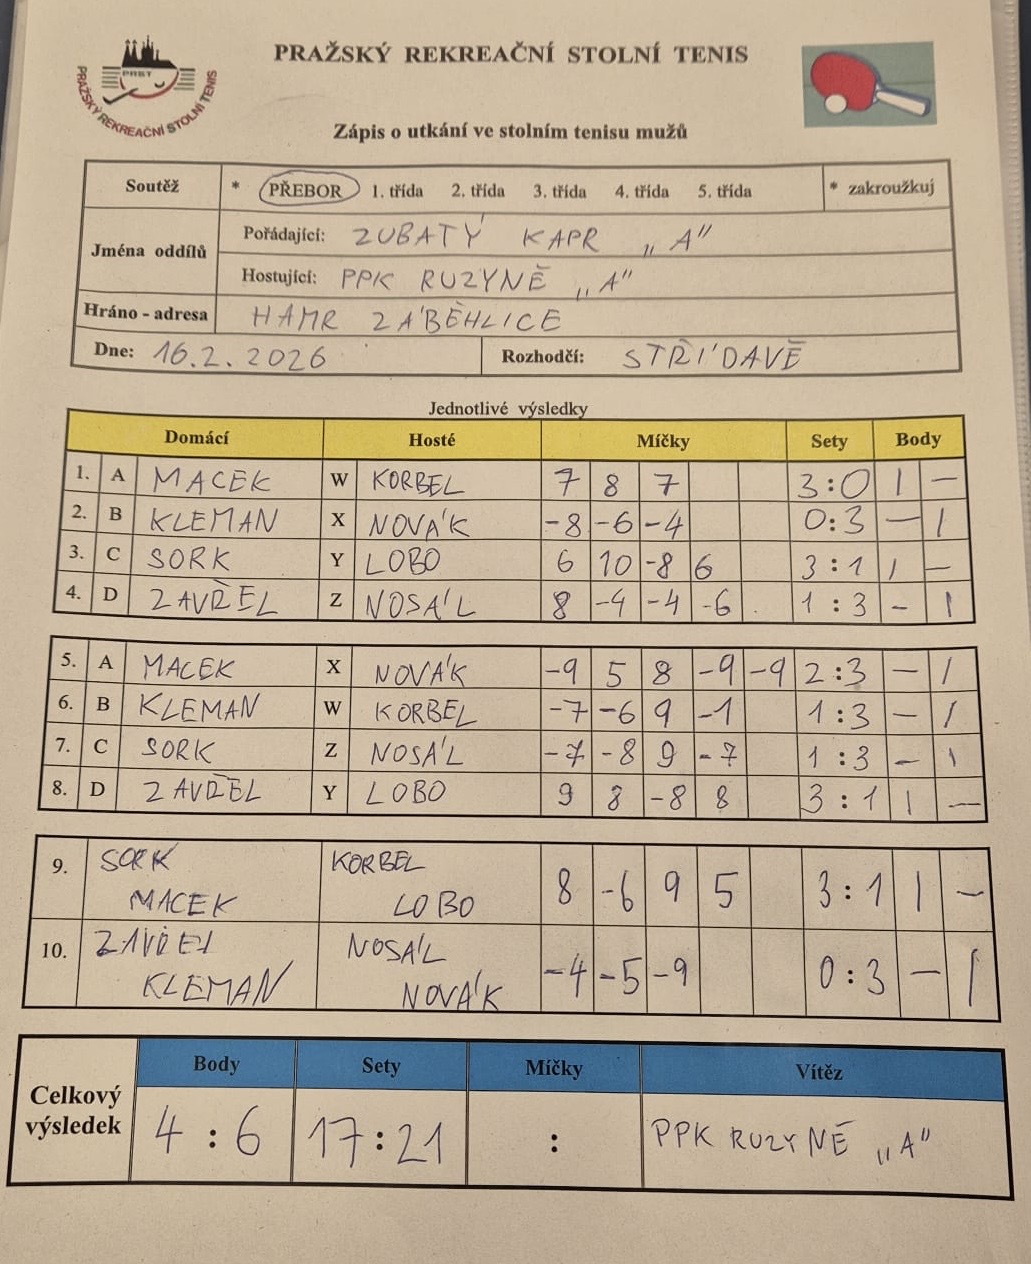 PRAŽSKÝ REKREAČNÍ STOLNÍ TENIS
PRST
PRAŽSKÝ REKREAČNÍ STOLNÍ TENIS
Zápis o utkání ve stolním tenisu mužů
Soutěž * PŘEBOR 1. třída 2. třída 3. třída 4. třída 5. třída * zakroužkuj
Jména oddílů
Pořádající: ZUBATÝ KAPR „A"
Hostující: PPK RUZYNĚ „A"
Hráno - adresa HAMR ZÁBĚHLICE
Dne: 16.2.2026 Rozhodčí: STŘÍDAVĚ
Jednotlivé výsledky
Domácí Hosté Míčky Sety Body
1. A MACEK W KORBEL 7 8 7 3:0 1 –
2. B KLEMAN X NOVÁK -8 -6 -4 0:3 – 1
3. C SORK Y LOBO 6 10 -8 6 3:1 1 –
4. D ZAVŘEL Z NOSÁL 8 -4 -4 -6 1:3 – 1
5. A MACEK X NOVÁK -9 5 8 -9 -9 2:3 – 1
6. B KLEMAN W KORBEL -7 -6 9 -1 1:3 – 1
7. C SORK Z NOSÁL -7 -8 9 -7 1:3 – 1
8. D ZAVŘEL Y LOBO 9 8 -8 8 3:1 1 –
9. SORK KORBEL
MACEK LOBO 8 -6 9 5 3:1 1 –
10. ZAVŘEL NOSÁL
KLEMAN NOVÁK -4 -5 -9 0:3 – 1
Body Sety Míčky Vítěz
Celkový výsledek 4:6 17:21 : PPK RUZYNĚ „A"